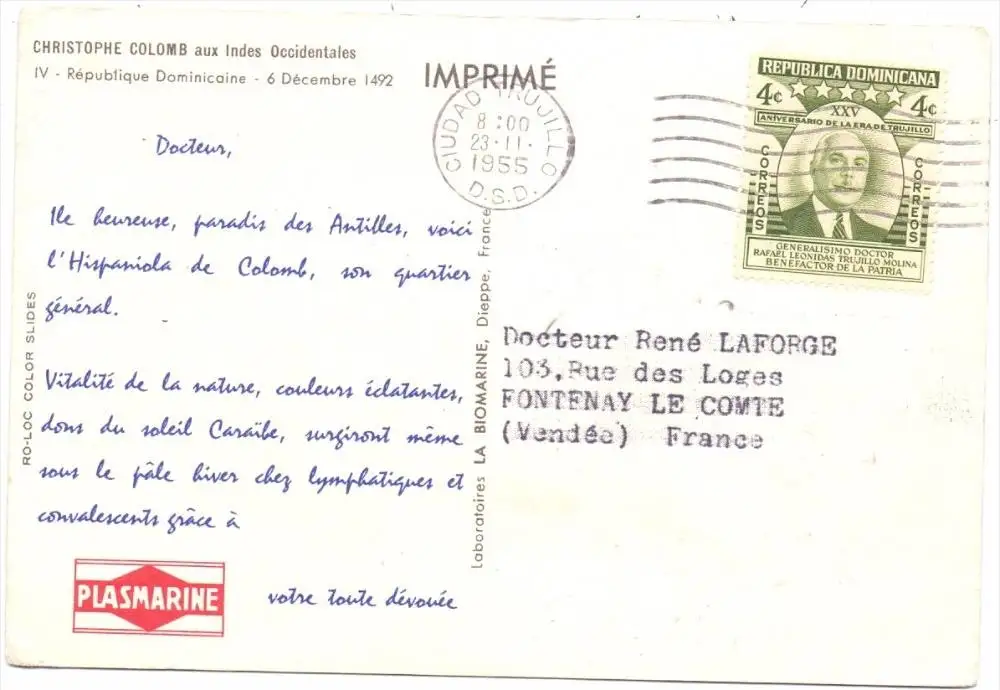 CHRISTOPHE COLOMB aux Indes Occidentales
IV - République Dominicaine - 6 Décembre 1492
IMPRIMÉ
CIUDAD TRUJILLO
8:00
23.11.
1955
D.S.D.
REPUBLICA DOMINICANA
4c 4c
XXV
ANIVERSARIO DE LA ERA DE TRUJILLO
CORREOS
CORREOS
GENERALISIMO DOCTOR
RAFAEL LEONIDAS TRUJILLO MOLINA
BENEFACTOR DE LA PATRIA
Docteur,
Ile heureuse, paradis des Antilles, voici
l'Hispaniola de Colomb, son quartier
général.
Vitalité de la nature, couleurs éclatantes,
dons du soleil Caraïbe, surgiront même
sous le pâle hiver chez lymphatiques et
convalescents grâce à
PLASMARINE
votre toute dévouée
RO-LOC COLOR SLIDES
Laboratoires LA BIOMARINE, Dieppe, France
Docteur René LAFORGE
103,Rue des Loges
FONTENAY LE COMTE
(Vendée) France